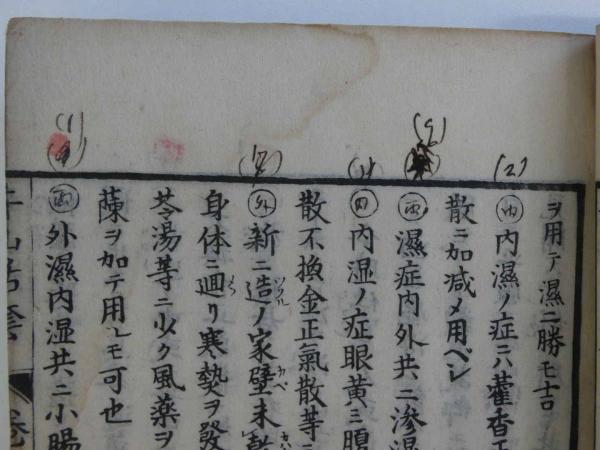 ヲ用テ濕ニ勝モ吉
(2)
㊤内濕ノ症ニハ藿香正
散ニ加減メ用ベシ
両 濕症内外共ニ滲湿
(11)
内 内湿ノ症眼黄ミ腹
散不換金正氣散等ニ
外 新ニ造ノ家壁未乾
身体ニ廻り寒熱ヲ發
苓湯等ニ少ク風薬ヲ
陳ヲ加テ用ルモ可也
(1)
両 外濕内湿共ニ小腸
牛山活套 巻